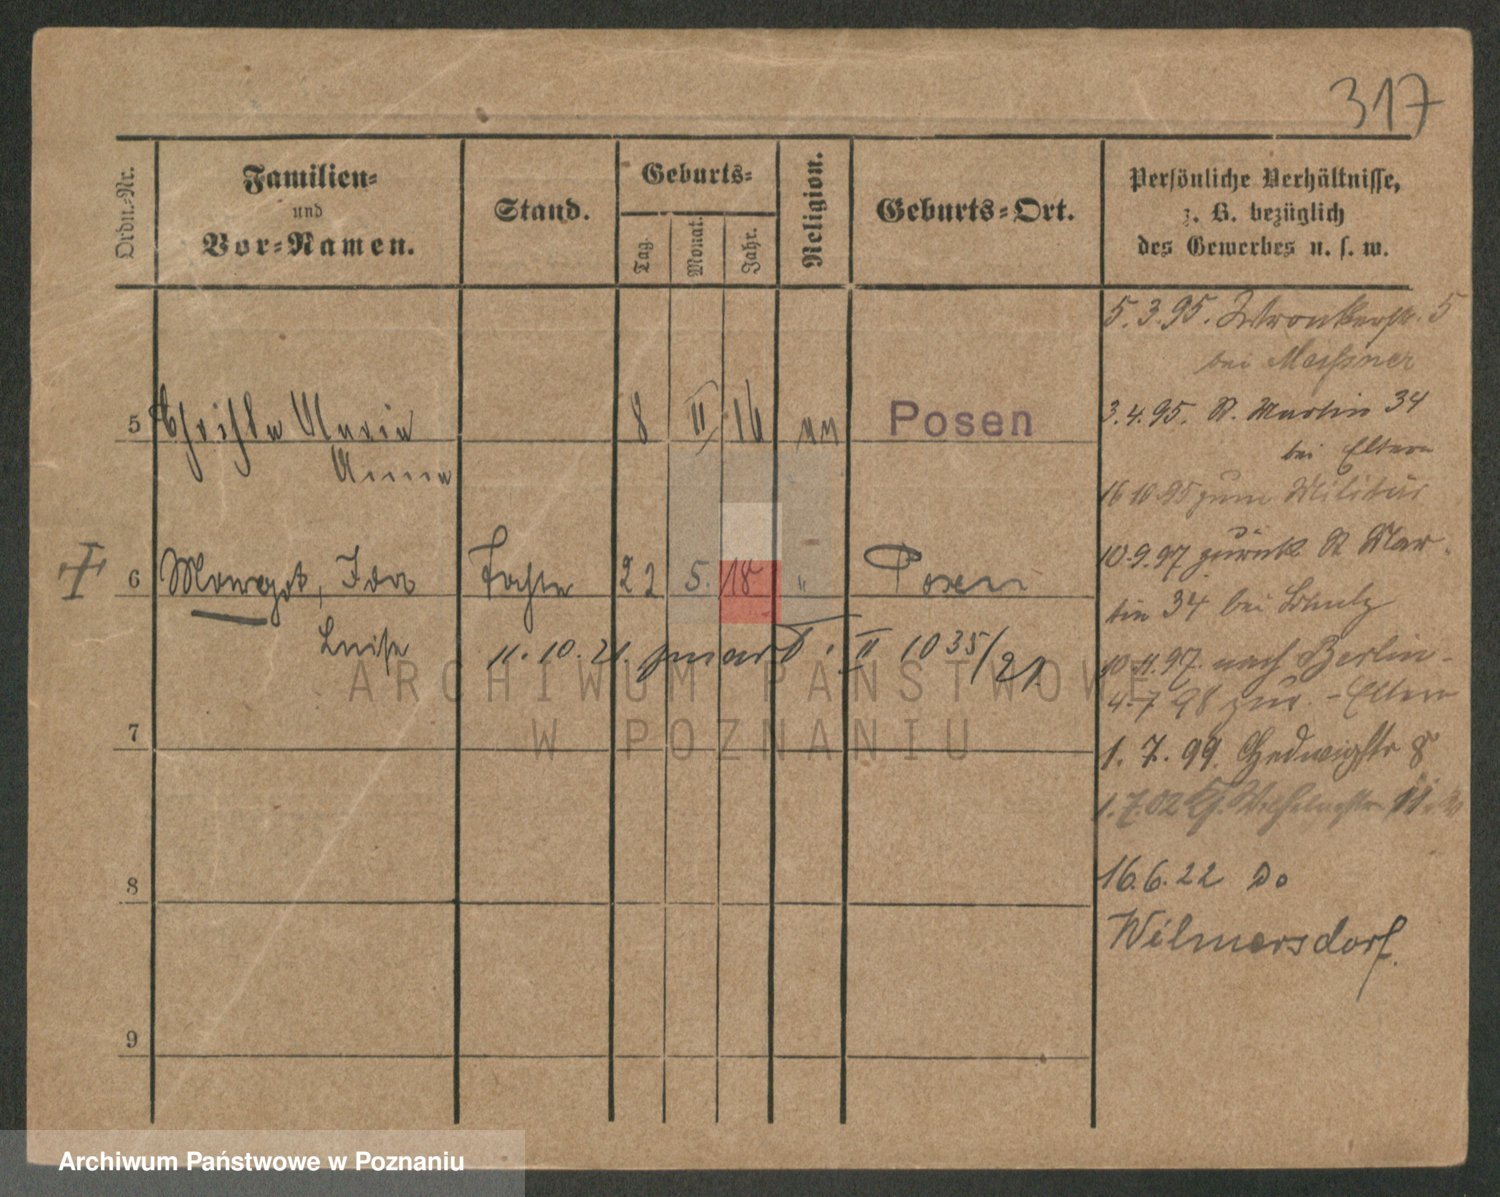 317
Ordn.-Nr.
Familien-
und
Vor-Namen.
Stand.
Geburts-
Tag.
Monat.
Jahr.
Religion.
Geburts-Ort.
Persönliche Verhältnisse,
z. B. bezüglich
des Gewerbes u. s. w.
5.3.95. Wronkerstr. 5
bei Meissner
5 Maria 8 II 16 Posen
Anna
3.4.95. St. Martin 34
bei Eltern
16 10.95 zum Militär
6 Ida 22 5. 18 " Posen
10.9.97 zurück St Mar-
Luise
tin 34 bei Schulz
11.10.21. II 1035/21
10.11.97. nach Berlin-
4.7 98 zur. - Eltern
7
1. 7. 99. Hedwigstr 8
1.7.02
8
16.6.22 Do
Wilmersdorf.
9
ARCHIWUM PAŃSTWOWE
W POZNANIU
Archiwum Państwowe w Poznaniu